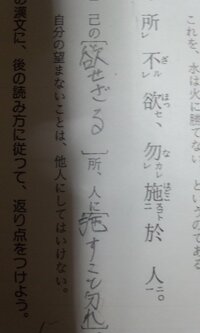 これを、水は火に勝てない、というのである
所レ不ざルレ欲ほっセ、勿なカレレ施ほどこスコト二於人ニ一。
己の［欲せざる］［所、人に施すこと勿れ］
自分の望まないことは、他人にしてはいけない。
の漢文に、後の読み方に従って、返り点をつけよう。